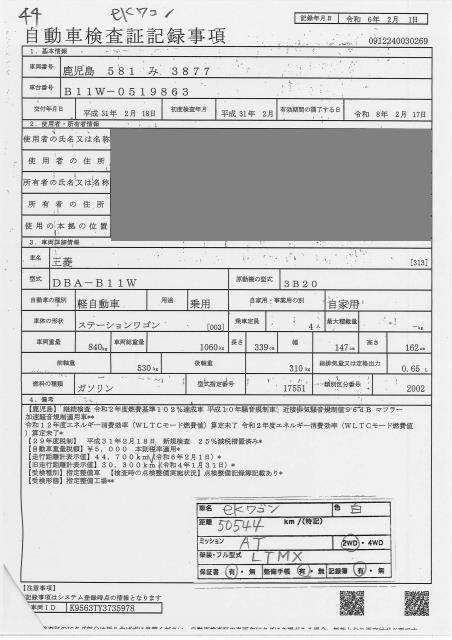 44 ekワゴン
記録年月日 令和 6年 2月 1日
自動車検査証記録事項 0912240030269
1. 基本情報
車両番号 鹿児島 581 み 3877
車台番号 B11W-0519863
交付年月日 平成31年 2月18日 初度検査年月 平成31年 2月 有効期間の満了する日 令和 8年 2月 17日
2. 使用者・所有者情報
使用者の氏名又は名称
使用者の住所
所有者の氏名又は名称
所有者の住所
使用の本拠の位置
3. 車両詳細情報
車名 三菱 [313]
型式 DBA-B11W 原動機の型式 3B20
自動車の種別 軽自動車 用途 乗用 自家用・事業用の別 自家用
車体の形状 ステーションワゴン [003] 乗車定員 4人 最大積載量 -kg
車両重量 840kg 車両総重量 1060kg 長さ 339cm 幅 147cm 高さ 162cm
前軸重 530kg 後軸重 310kg 総排気量又は定格出力 0.65 L
燃料の種類 ガソリン 型式指定番号 17551 類別区分番号 2002
4. 備考
【鹿児島】 継続検査 令和2年度燃費基準102%達成車 平成10年騒音規制車、近接排気騒音規制値96dB マフラー
加速騒音規制適用車**
令和12年度エネルギー消費効率(WLTCモード燃費値)算定未了 令和2年度エネルギー消費効率(WLTCモード燃費値
)算定未了*
【29年度税制】 平成31年2月18日 新規検査 25%減税措置済み*
【自動車重量税額】¥5,000 本則税率適用*
【走行距離計表示値】44,700km(令和6年2月1日)*
【旧走行距離計表示値】30,300km(令和4年1月31日)*
【受検種別】指定整備車 【検査時の点検整備実施状況】点検整備記録簿記載あり*
【受検形態】指定整備工場**
車名 ekワゴン 色 白
距離 50544 km/(特記)
ミッション AT 2WD・4WD
架装・フル型式 LTMX
保証書 有・無 整備手帳 有・無 記録簿 有・無
【注意事項】
記録事項はシステム登録時点の情報となります
車両ID K9563TY3735978